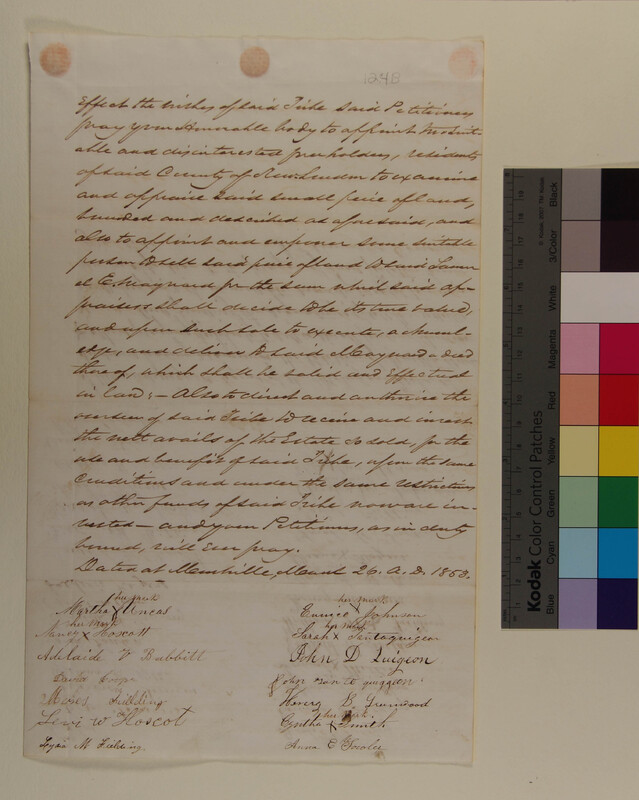 1248
Effect the wishes of said Tribe said Petitioners
pray your Honorable body to appoint two suit-
able and disinterested freeholders, residents
of said County of New London to examine
and appraise said small piece of land,
bounded and described as aforesaid, and
also to appoint and empower some suitable
person to sell said piece of land to said Samu-
el E. Maynard for the sum which said ap-
praisers shall decide to be its true value,
and upon such sale to execute, acknowl-
edge, and deliver to said Maynard a deed
thereof, which shall be valid and effectual
in law; – Also to direct and authorize the
overseer of said Tribe to receive and invest
the nett avails of the Estate so sold, for the
use and benefit of said Tribe, upon the same
conditions and under the same restrictions
as other funds of said Tribe now are in-
vested – and your Petitioners, as in duty
bound, will Ever pray.
Dated at Montville, March 26. A.D. 1853.
her mark
Martha X Uncas
her mark
Nancy X Hoscott
Adelaide V Babbitt
Coop
Moses Fielding
Levi W Hoscot
M Fielding
her mark
Eunice X Johnson
her mark
Sarah X Tantaquigeon
John D Quigeon
John tan te quiggeon
B Greenwood
her mark
Cyntha X Smith
Anna C Fowler
Kodak Color Control Patches
© Kodak, 2007 TM: Kodak
Blue
Cyan
Green
Yellow
Red
Magenta
White
3/Color
Black